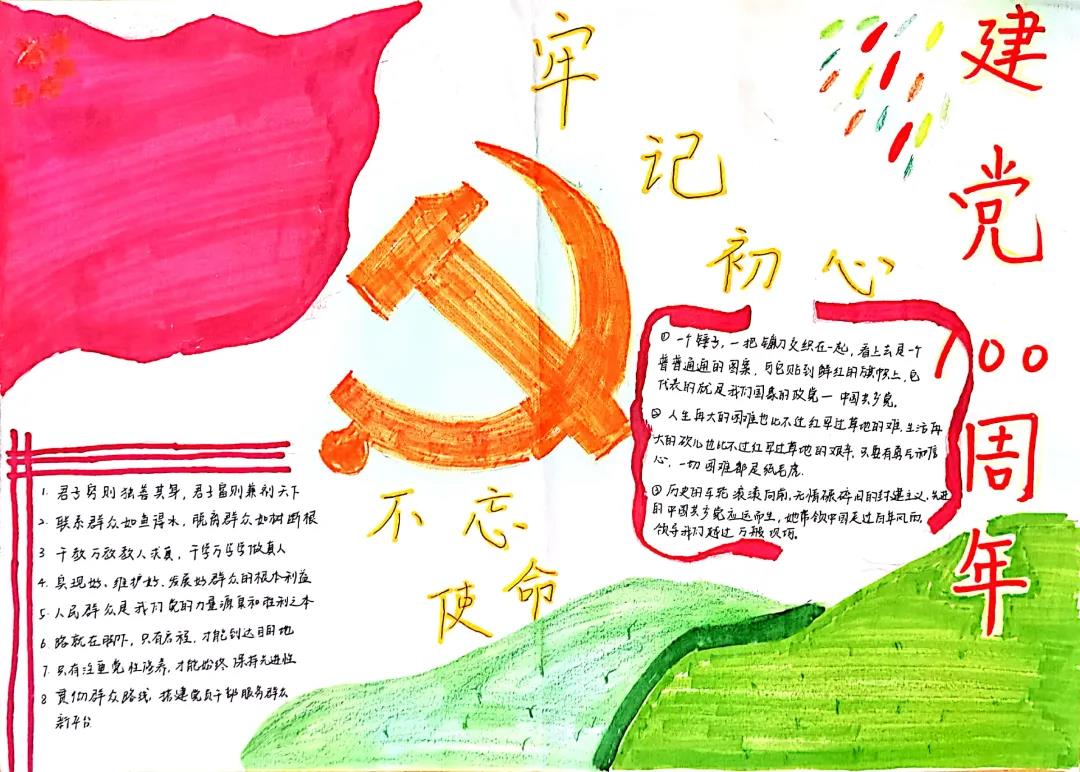 牢
记
初心
建
党
100
周
年
① 一个锤子，一把镰刀交织在一起，看上去是一个
普普通通的图案，可它贴到鲜红的旗帜上，它
代表的就是我们国家的政党一中国共产党。
② 人生再大的困难也比不过红军过草地的难，生活再
大的坎儿也比不过红军过草地的艰辛，只要有勇气和信
心，一切困难都是纸老虎。
③ 历史的车轮滚滚向前，无情碾碎旧的封建主义，先进
的中国共产党应运而生，她带领中国走过百年风雨，
领导我们越过万般坎坷。
不忘
使命
1. 君子穷则独善其身，君子富则兼利天下
2. 联系群众如鱼得水，脱离群众如树断根
3 千教万教教人求真，千学万学学做真人
4. 实现好、维护好、发展好群众的根本利益
5. 人民群众是我们党的力量源泉和胜利之本
6. 路就在脚下，只有启程，才能到达目的地
7. 只有注重党性修养，才能始终保持先进性
8 贯彻群众路线，搭建党员干部服务群众
新平台